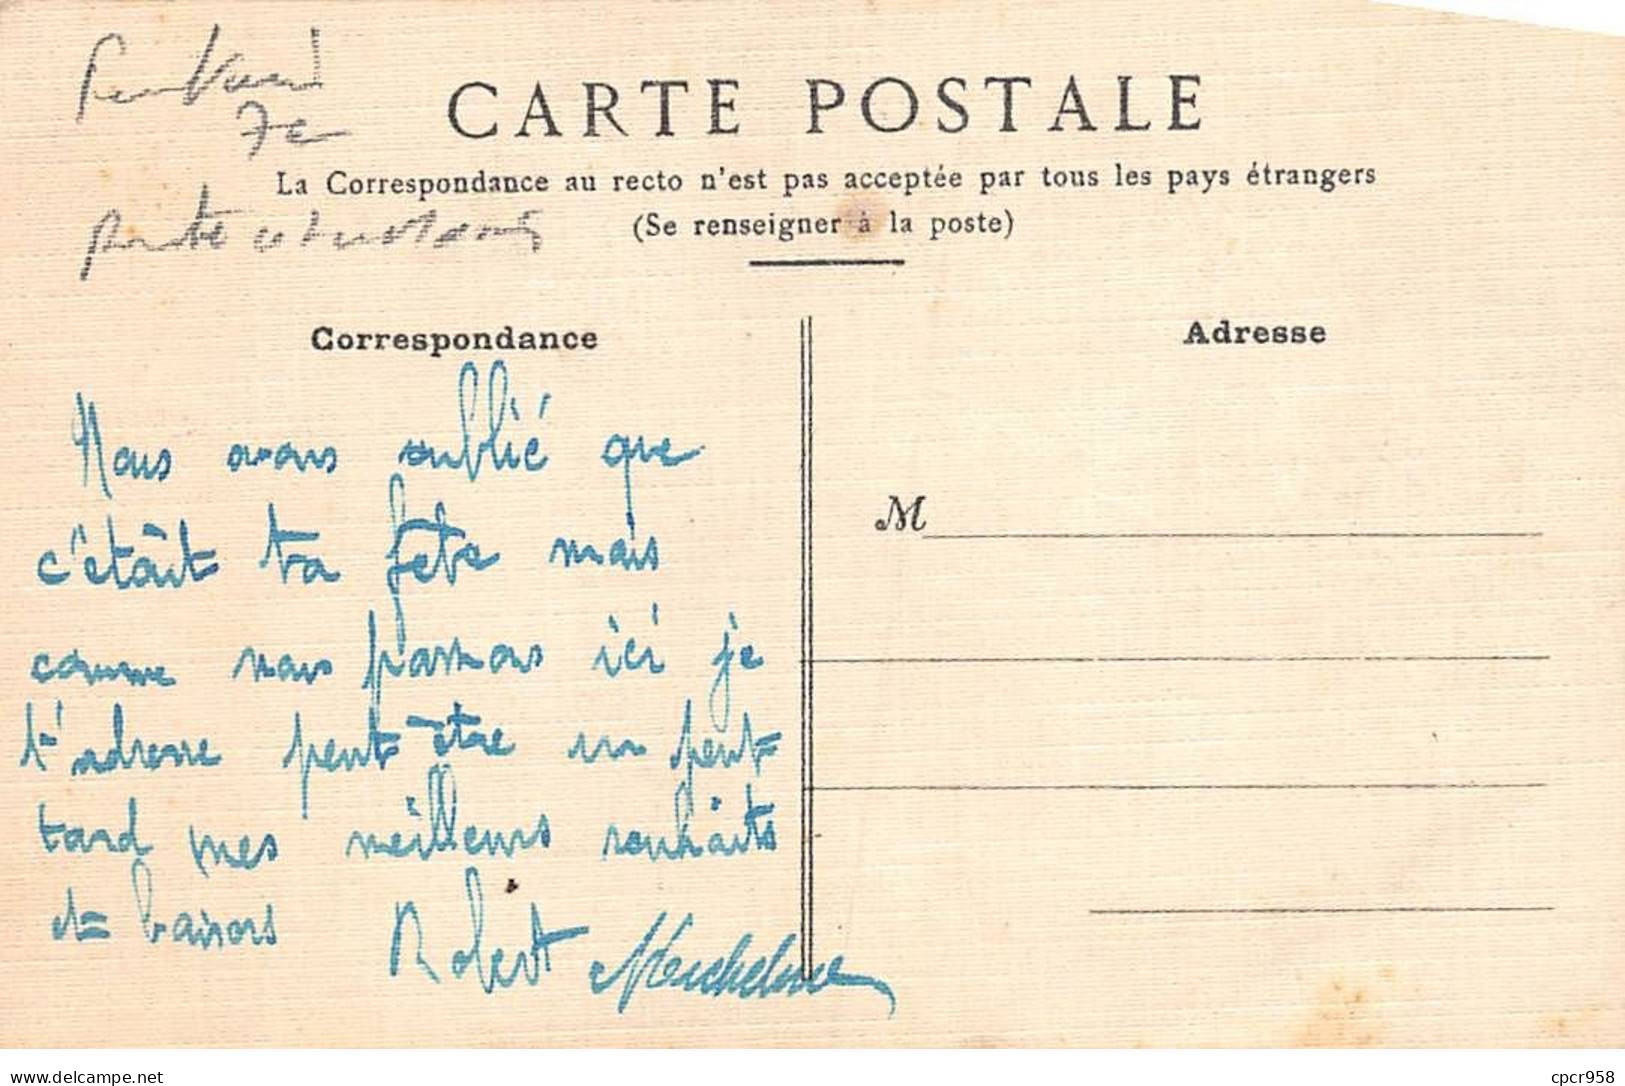 CARTE POSTALE
La Correspondance au recto n'est pas acceptée par tous les pays étrangers
(Se renseigner à la poste)
Correspondance
Adresse
Nous avons oublié que
c'était ta fête mais
comme nous passons ici je
t'adresse peut-être un peut
tard mes meilleurs souhaits
et baisers Robert Micheline
M
delcampe.net
cpcr958